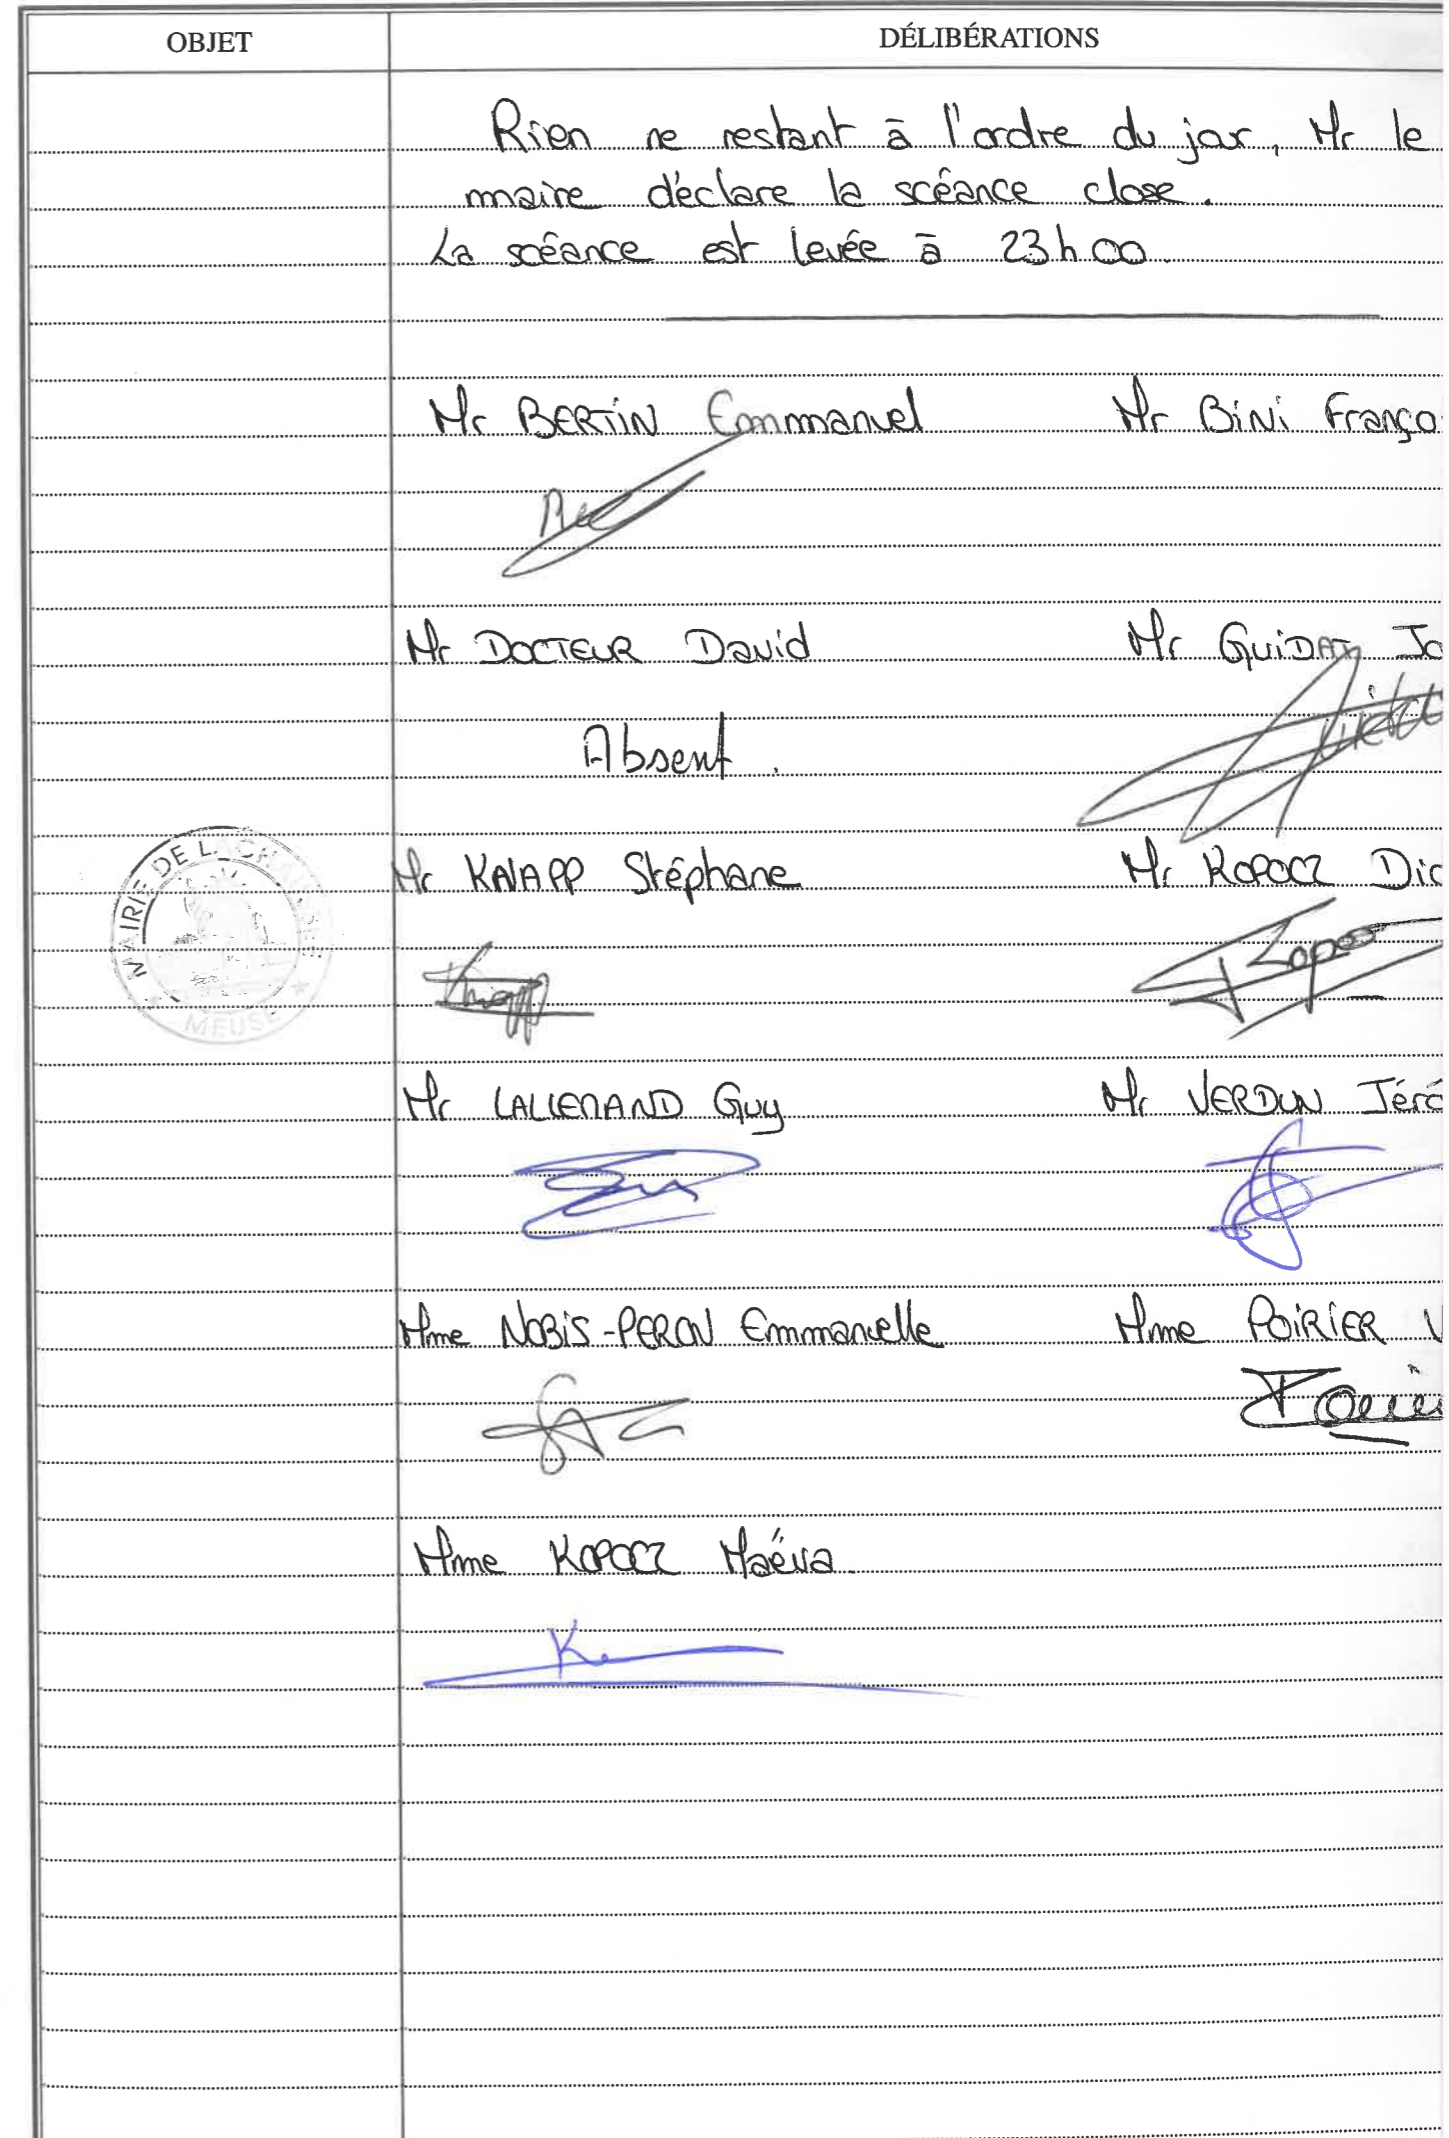 OBJET
DÉLIBÉRATIONS
Rien ne restant à l'ordre du jour, Mr le
maire déclare la scéance close.
La scéance est levée à 23h00.
Mr BERTIN Emmanuel Mr BINI Franço
Mr DOCTEUR David Mr GUIDAT Jo
Absent.
Mr KNAPP Stéphane Mr KOPOCZ Did
MAIRIE DE LACHAUSSEE
MEUSE
Mr LALLEMAND Guy Mr VERDUN Jérô
Mme NOBIS-PERON Emmanuelle Mme POIRIER V
Mme KOPOCZ Maéva